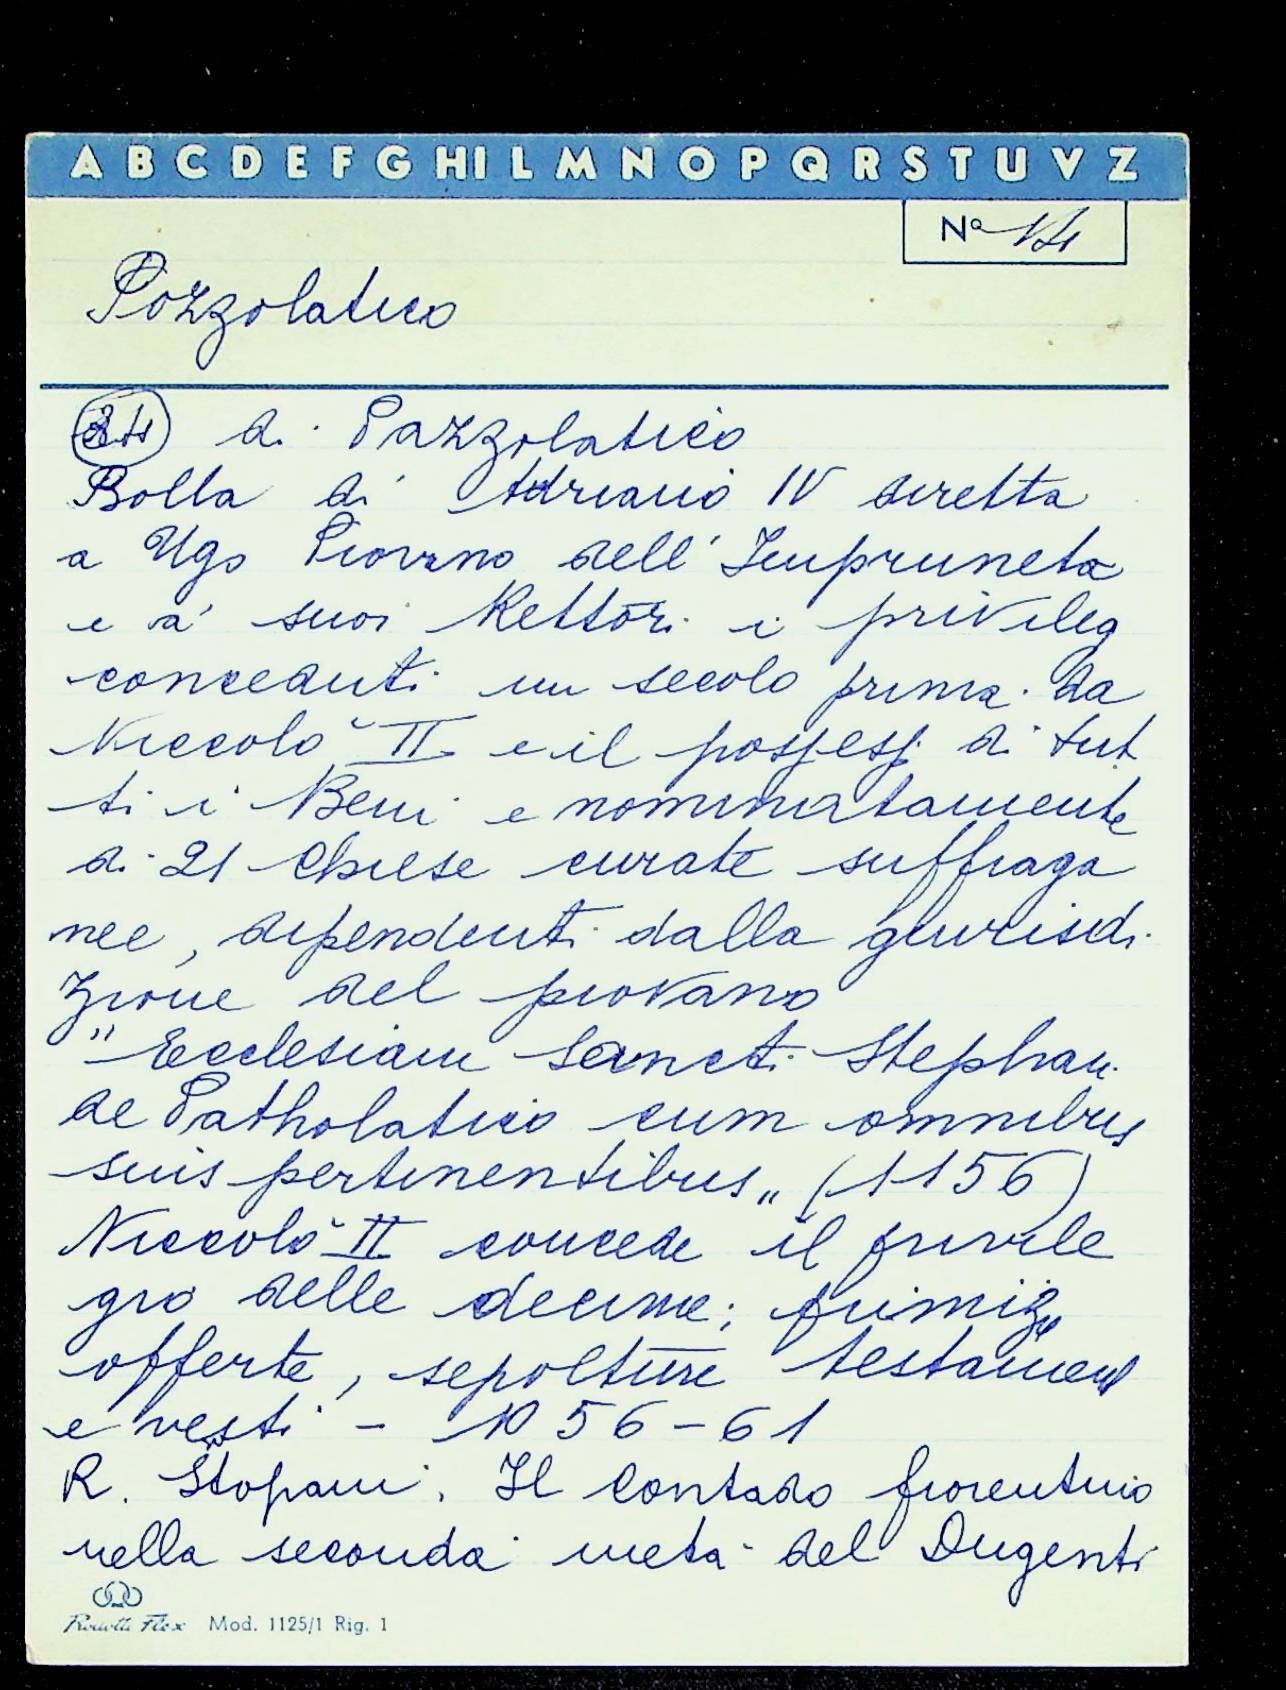 A B C D E F G HI L M N O P Q R S T U V Z
Nº
Pozzolatico
di Pazzolatico
Bolla di Adriano IV diretta
a Ugo Piovano dell'Impruneta
e a' suoi Rettori i privileg
conceduti un secolo prima da
Niccolò II e il possess. di tut
ti i Beni e nominatamente
di 21 Chiese curate suffraga
nee, dipendenti dalla giurisdi
zione del piovano
"Ecclesiam Sancti Stephani
de Patholatico cum omnibus
suis pertinentibus" (1156)
Niccolò II concede il privile
gio delle decime; primiz.
offerte, sepolture testament
e vesti - 1056-61
R. Stopani. Il Contado fiorentino
nella seconda metà del Dugenti
Mod. 1125/1 Rig. 1